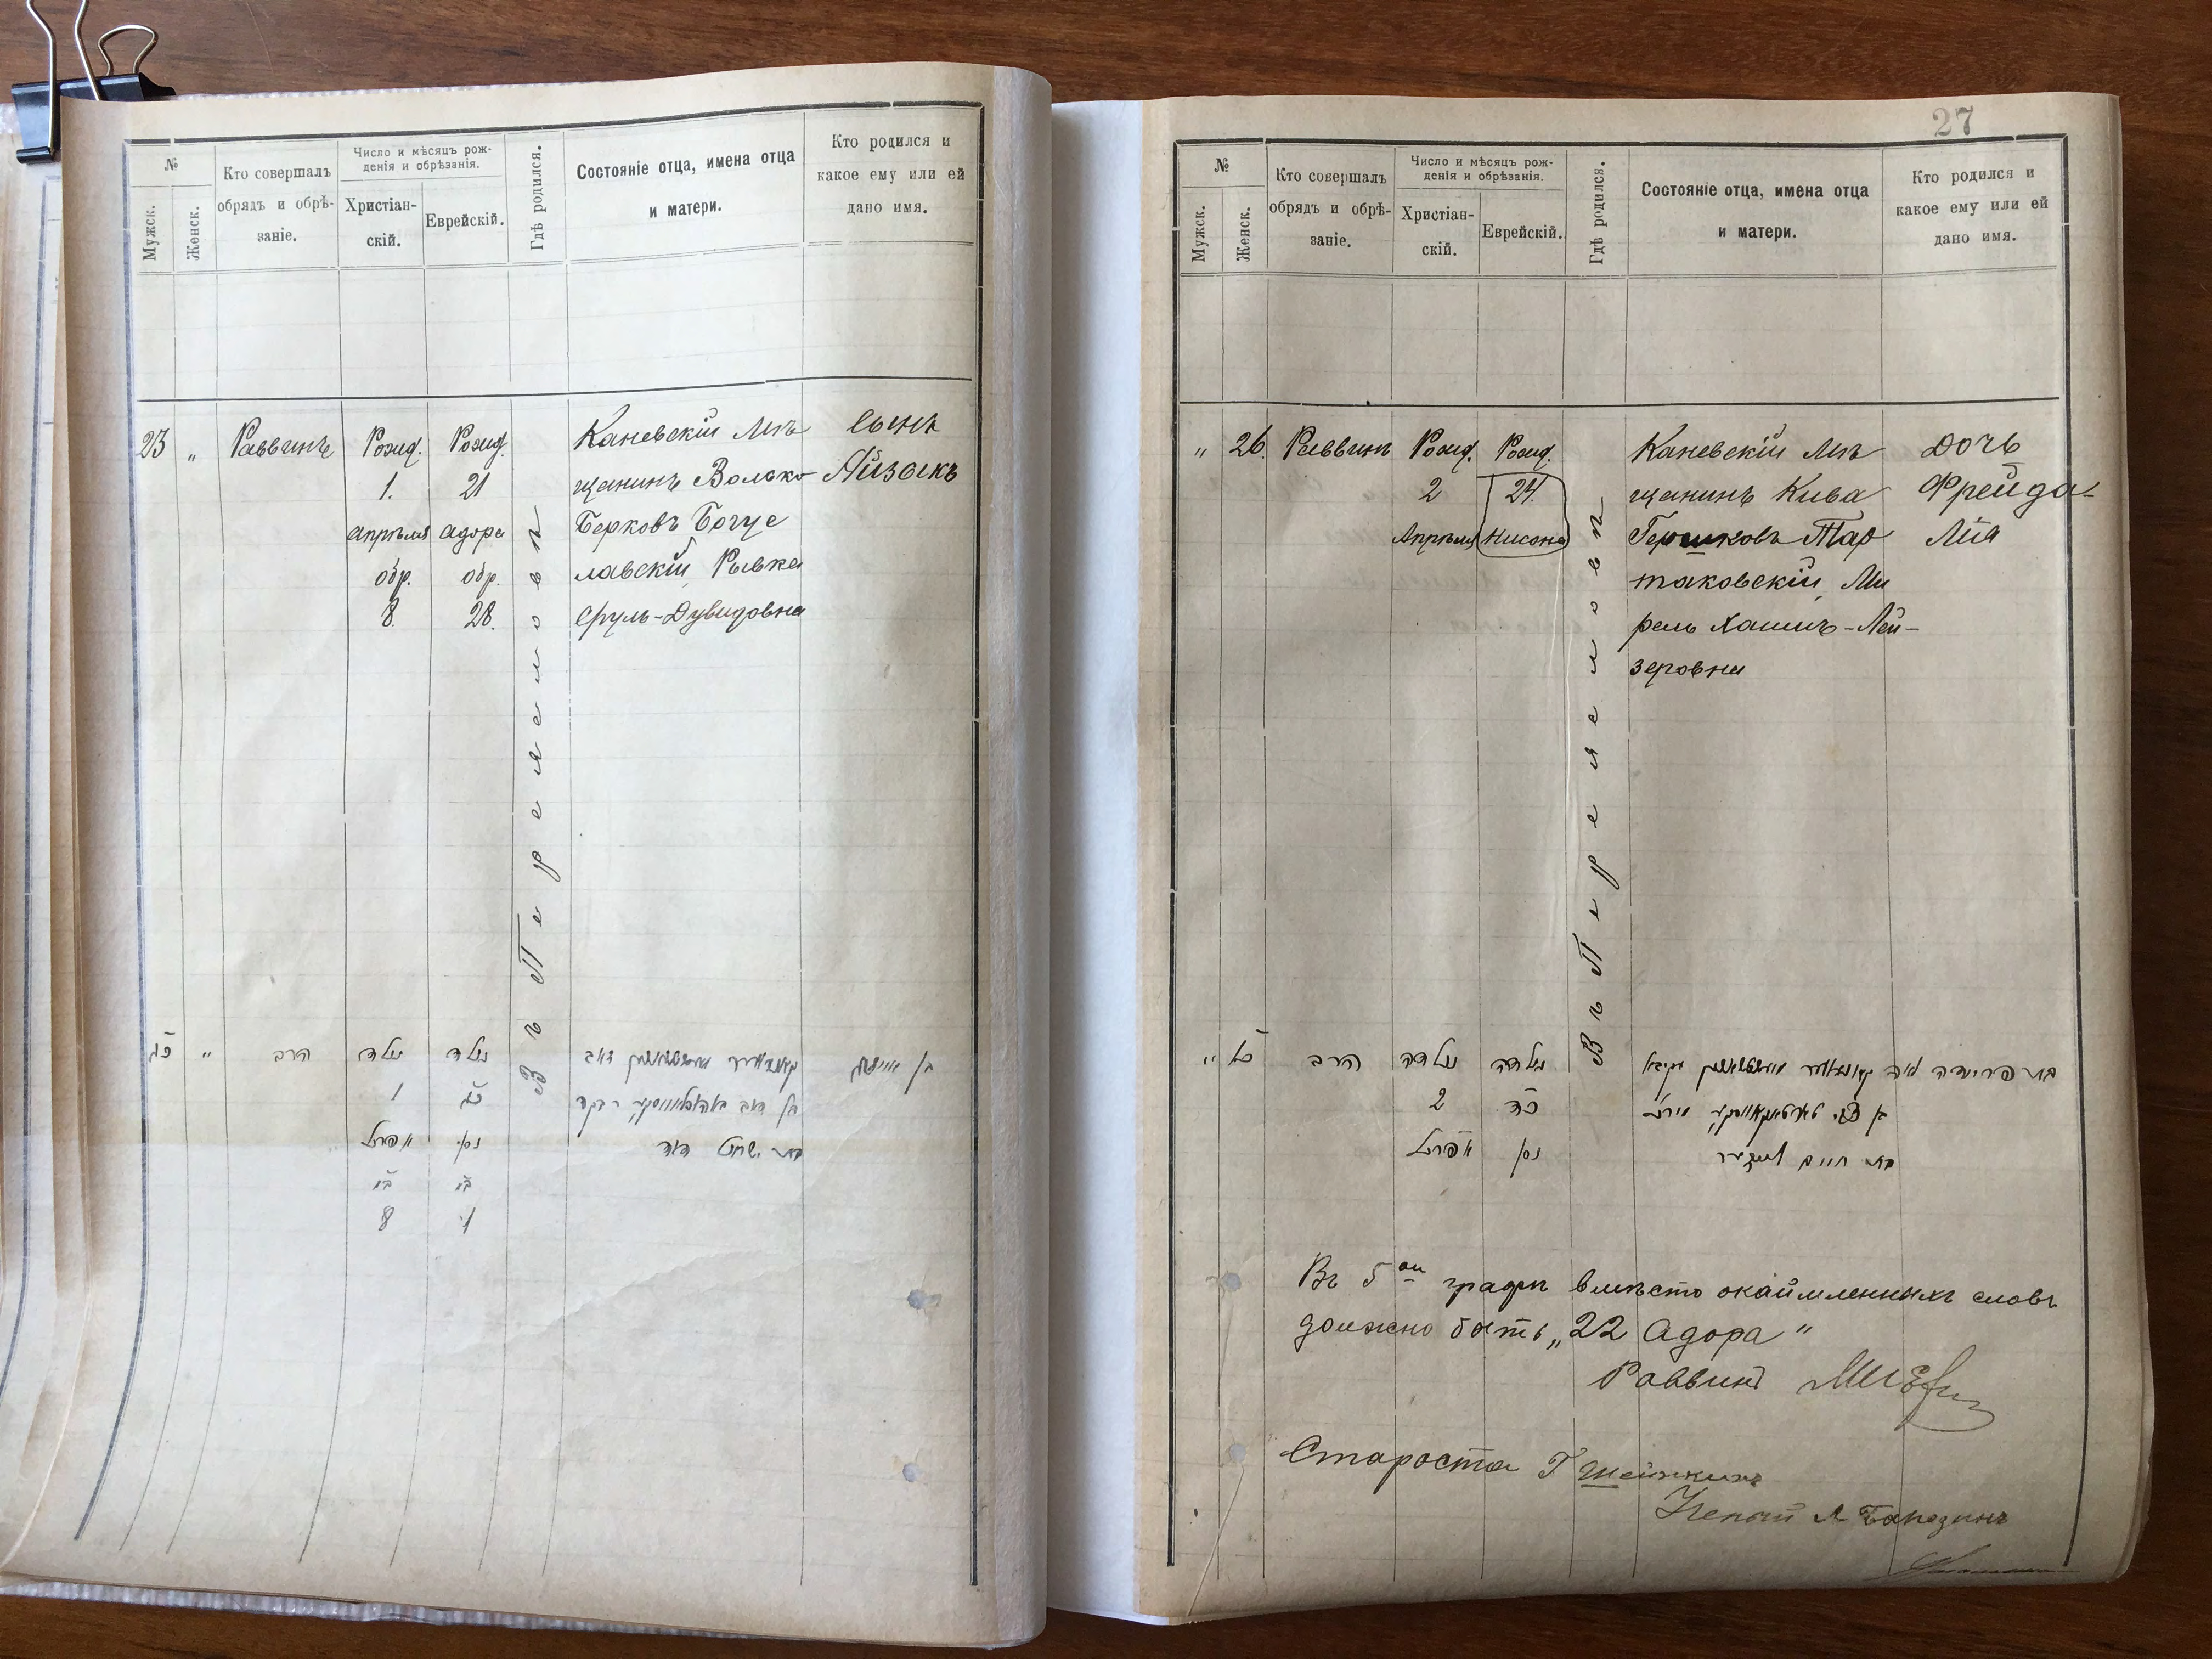 №
Мужск.
Женск.
Кто совершалъ
обрядъ и обрѣ-
заніе.
Число и мѣсяцъ рож-
денія и обрѣзанія.
Христіан-
скій.
Еврейскій.
Гдѣ родился.
Состояніе отца, имена отца
и матери.
Кто родился и
какое ему или ей
дано имя.
23
„
Раввинъ
Рожд.
1.
апрѣля
обр.
8.
Рожд.
21
адора
обр.
28.
Въ Переяславѣ
Каневскій мѣ
щанинъ Волько
Берковъ Богус
лавскій, Рывка
Сруль-Дувидовна
сынъ
Айзокъ
כג
„
הרב
נולד
1
אפריל
8
נולד
כא
ניסן
27
№
Мужск.
Женск.
Кто совершалъ
обрядъ и обрѣ-
заніе.
Число и мѣсяцъ рож-
денія и обрѣзанія.
Христіан-
скій.
Еврейскій.
Гдѣ родился.
Состояніе отца, имена отца
и матери.
Кто родился и
какое ему или ей
дано имя.
„
26.
Раввинъ
Рожд.
2
Апрѣля
Рожд.
24.
Нисона
Въ Переяславѣ
Каневскій мѣ
щанинъ Кива
Гершковъ Тар
таковскій, Ми
рель Хаимъ-Лей-
зеровна
дочь
Фрейда-
Лія
„
הרב
נולדה
2
אפריל
נולדה
כד
ניסן
בת חיים לייזער
Въ 5ой графѣ вмѣсто окаймленныхъ словъ
должно быть „22 Адора"
Раввинъ
Староста Г Шейнкинъ
Ученый